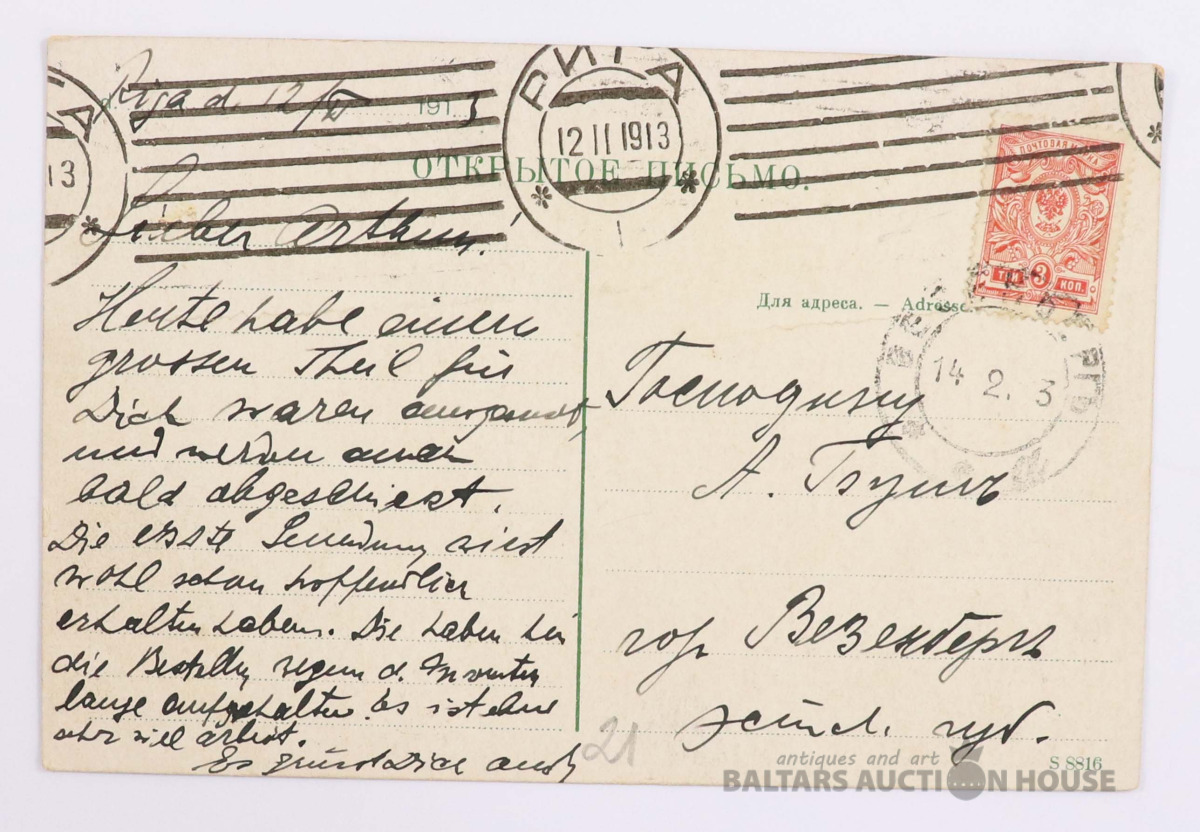 Riga d. 12/II 1913
РИГА
12 II 1913
1
ОТКРЫТОЕ ПИСЬМО.
ПОЧТОВАЯ МАРКА
ТРИ 3 КОП.
Lieber Arthur!
Heute habe einen
grossen Theil für
Dich waren
und werden auch
bald abgeschickt.
Die erste Sendung wirst
wohl schon hoffentlich
erhalten haben. Die haben
die wegen d.
lange aufgehalten. Es ist eben
sehr viel arbeit.
Es grüsst Dich auch
Для адреса. — Adresse
14 2. 3
Господину
А.
гор Везенбергъ
эстл. губ.
21
S 8816
antiques and art
BALTARS AUCTION HOUSE